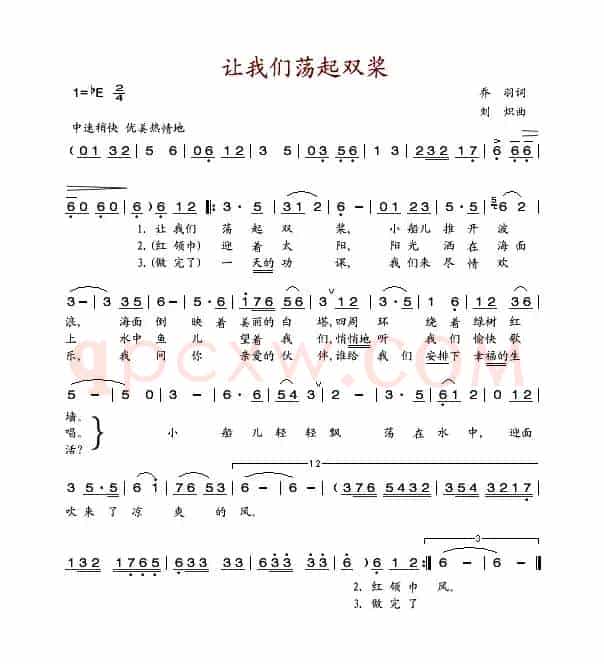 让我们荡起双桨
1=♭E 2/4
乔 羽词
刘 炽曲
中速稍快 优美热情地
(01 32 | 5 6 | 06 12 | 3 5 | 03 56 | 1 3 | 232 17 | 6 66 |
60 60 | 6) 6 12 |: 3 · 5 | 31 2 | 6 - | 01 23 | 5 · 5 | 56 2 |
1.让我们 荡 起 双 桨, 小船儿 推开 波
2.(红领巾) 迎 着 太 阳, 阳光 洒在 海面
3.(做完了) 一 天的 功 课, 我们来 尽情 欢
3 - | 3 35 | 6 · 5 | 6 · 6 | 176 56 | 3 12 | 3 · 5 | 1 6 | 12 36 |
浪, 海面 倒 映着 美丽的 白 塔,四周 环 绕着 绿树 红
上 水中 鱼 儿 望着 我 们,悄悄地 听 我 们 愉快 歌
乐, 我 问 你 亲爱的 伙 伴,谁给 我 们 安排下 幸福的生
qpcxw.com
5 - | 5 0 |
墙。
唱。 小 船 儿 轻 轻 飘 荡 在 水 中, 迎面
活?
12
3 5 · 5 | 6 1 | 76 53 | 6 - | 6 - | (376 5432 | 376 5432 | 354 3217 |
吹 来 了 凉 爽 的 风。
3
2.红 领 巾 风。
3.做 完 了